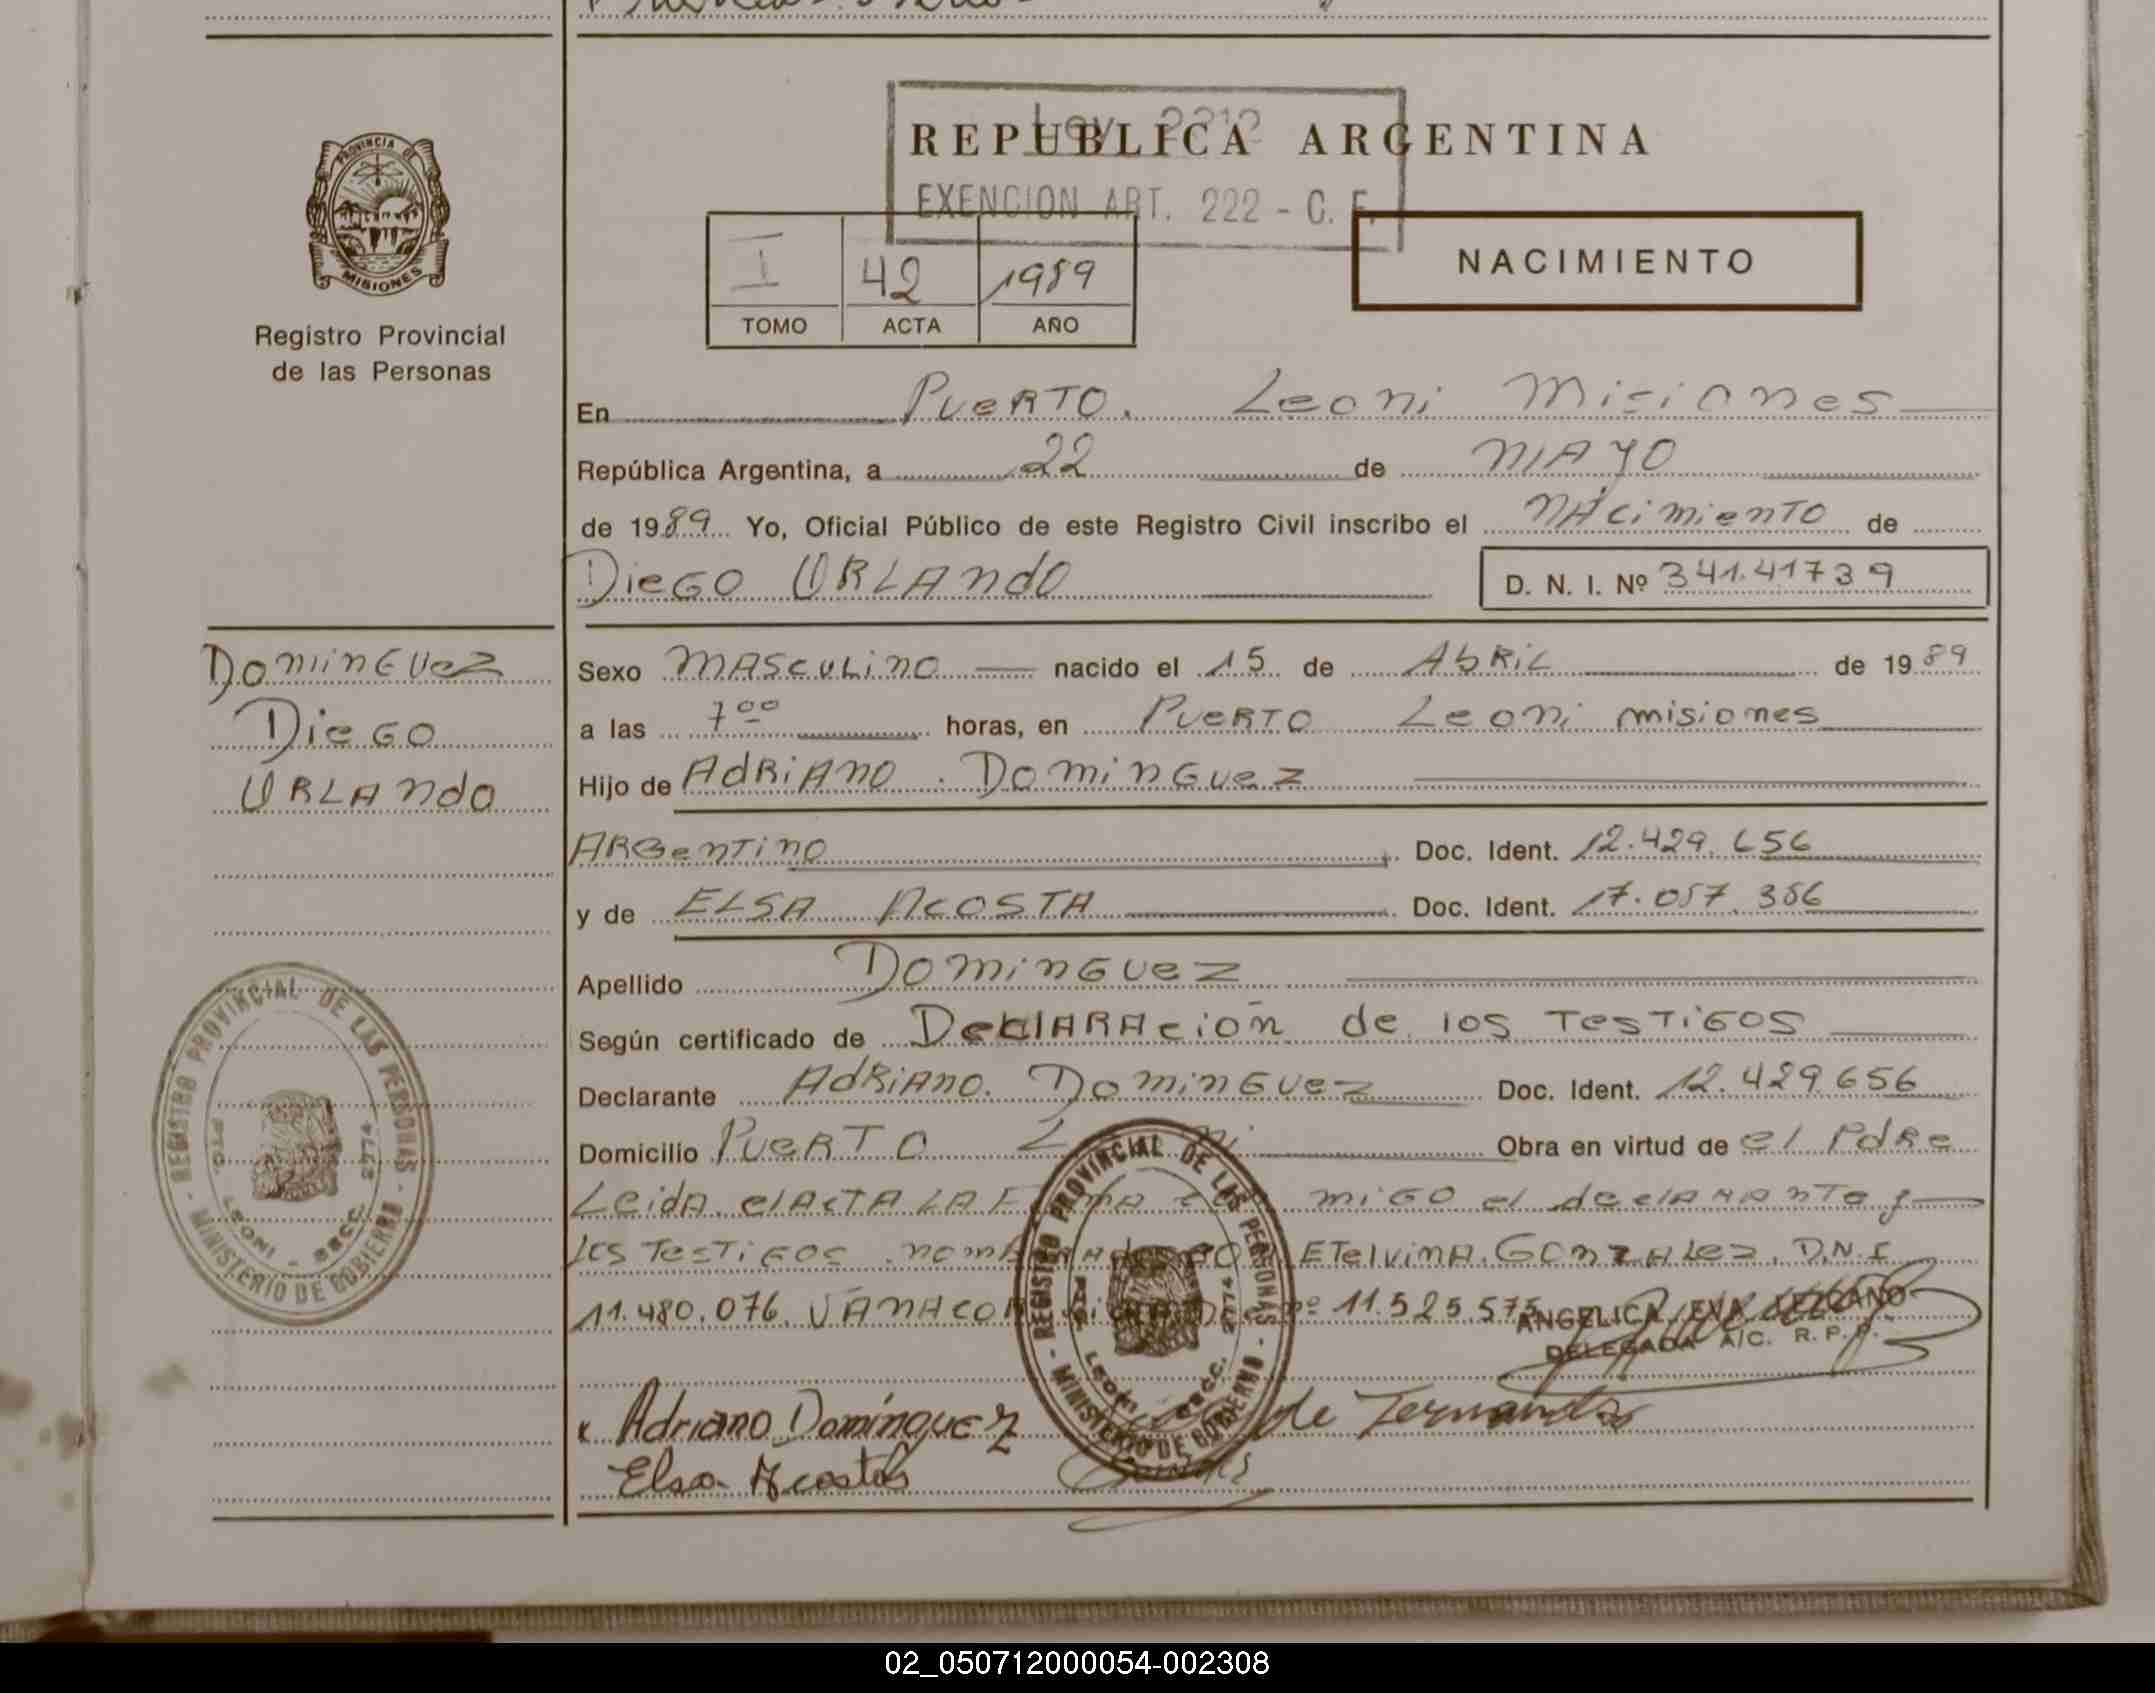 PROVINCIA DE
MISIONES
Registro Provincial
de las Personas
Ley 2212
REPUBLICA ARGENTINA
EXENCION ART. 222 - C. F.
I 42 1989
TOMO ACTA AÑO
NACIMIENTO
En PUERTO. Leoni Misiones
República Argentina, a 22 de MAYO
de 1989 Yo, Oficial Público de este Registro Civil inscribo el NACimiento de
DIEGO URLANDO D. N. I. Nº 341.41739
Dominguez
Diego
URLANDO
Sexo MASCULINO nacido el 15 de Abril de 1989
a las 7 00 horas, en PUERTO Leoni misiones
Hijo de AdRiANO. DominGuez
ARGenTino Doc. Ident. 12.429.656
y de ELSA ACOSTA Doc. Ident. 17.057.386
Apellido DominGuez
Según certificado de DeclARAción de los TesTiGOS
Declarante AdRiANO. DominGuez Doc. Ident. 12.429.656
Domicilio PUERTO Obra en virtud de el PdRe
Leida el ActA LA miGO el declARAnTe y
los TesTiGos ETelvinA. GONZALez. D.N.I
11.480.076. nº 11.525.575
ANGELICA EVA LEZCANO
DELEGADA A/C. R. P. P.
Adriano Domínguez de Fernandez
Elsa Acosta
REGISTRO PROVINCIAL DE LAS PERSONAS
PTO. LEONI - SECC. 2774
MINISTERIO DE GOBIERNO
REGISTRO PROVINCIAL DE LAS PERSONAS
PTO. LEONI - SECC. 2774
MINISTERIO DE GOBIERNO
02_050712000054-002308